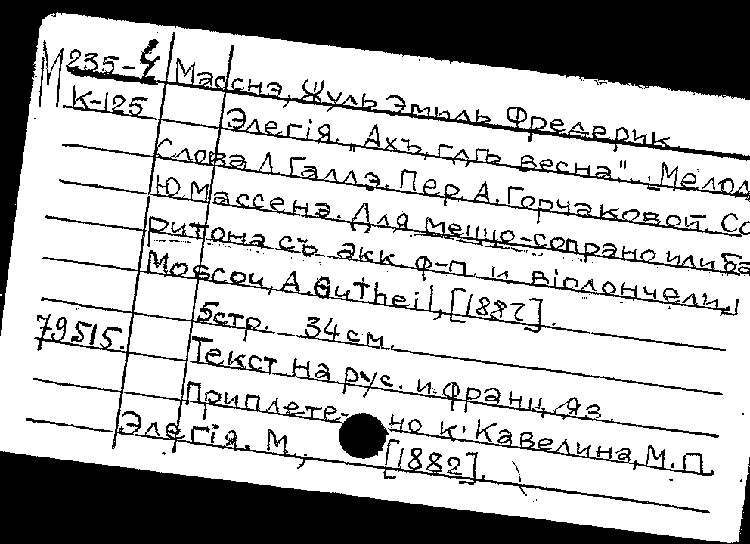 М 235-4 Массне, Жуль Эмиль Фредерик
К-125 Элегія. „Ахъ, гдѣ весна". Мелод
Слова Л. Галлэ. Пер А. Горчаковой. Со
Ю. Массенэ. Для меццо-сопрано или ба
ритона съ акк ф-п и віолончели
Moscou, A. Gutheil, [1882].
5 стр. 34 см.
79515. Текст на рус. и франц. яз.
Приплете- но к: Кавелина, М. П.
Элегія. М., [1882].